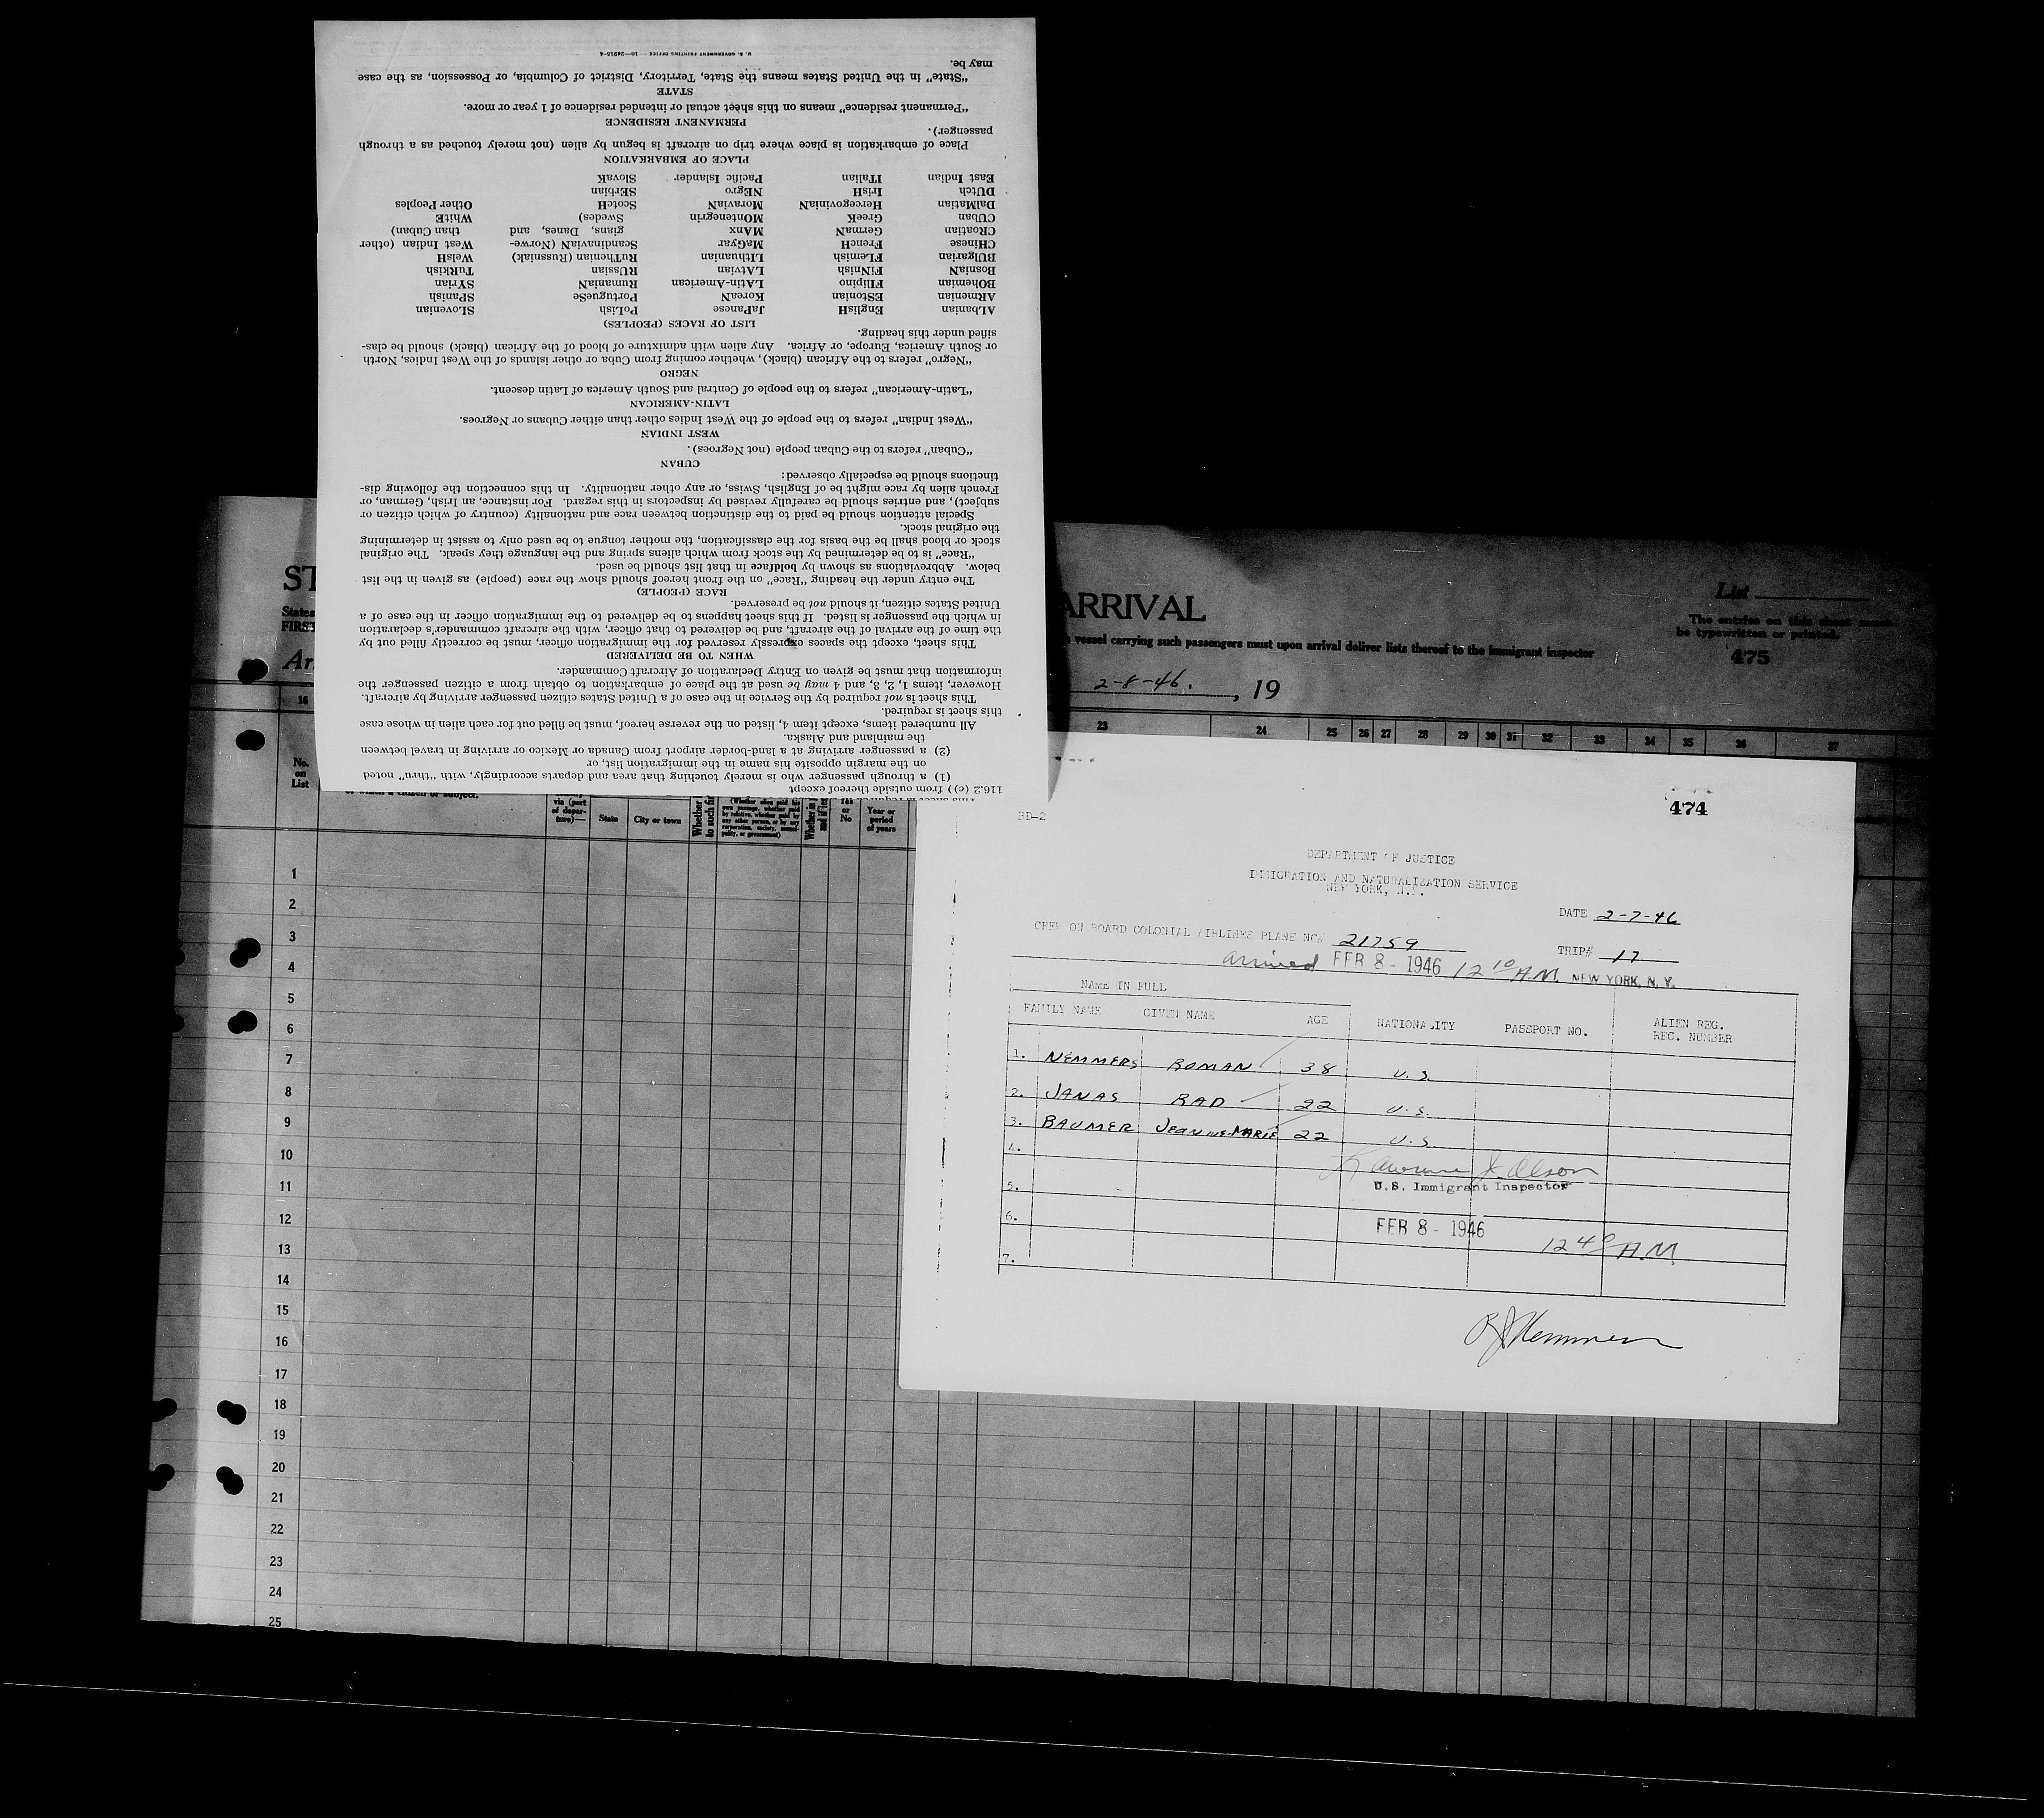 116.2 (c)) from outside thereof except
(1) a through passenger who is merely touching that area and departs accordingly, with "thru" noted
on the margin opposite his name in the immigration list, or
(2) a passenger arriving at a land-border airport from Canada or Mexico or arriving in travel between
the mainland and Alaska.
All numbered items, except item 4, listed on the reverse hereof, must be filled out for each alien in whose case
this sheet is required.
This sheet is not required by the Service in the case of a United States citizen passenger arriving by aircraft.
However, items 1, 2, 3, and 4 may be used at the place of embarkation to obtain from a citizen passenger the
information that must be given on Entry Declaration of Aircraft Commander.
WHEN TO BE DELIVERED
This sheet, except the spaces expressly reserved for the immigration officer, must be correctly filled out by
the time of the arrival of the aircraft, and be delivered to that officer, with the aircraft commander's declaration
in which the passenger is listed. If this sheet happens to be delivered to the immigration officer in the case of a
United States citizen, it should not be preserved.
RACE (PEOPLE)
The entry under the heading "Race" on the front hereof should show the race (people) as given in the list
below. Abbreviations as shown by boldface in that list should be used.
"Race" is to be determined by the stock from which aliens spring and the language they speak. The original
stock or blood shall be the basis for the classification, the mother tongue to be used only to assist in determining
the original stock.
Special attention should be paid to the distinction between race and nationality (country of which citizen or
subject), and entries should be carefully revised by inspectors in this regard. For instance, an Irish, German, or
French alien by race might be of English, Swiss, or any other nationality. In this connection the following dis-
tinctions should be especially observed:
CUBAN
"Cuban" refers to the Cuban people (not Negroes).
WEST INDIAN
"West Indian" refers to the people of the West Indies other than either Cubans or Negroes.
LATIN-AMERICAN
"Latin-American" refers to the people of Central and South America of Latin descent.
NEGRO
"Negro" refers to the African (black), whether coming from Cuba or other islands of the West Indies, North
or South America, Europe, or Africa. Any alien with admixture of blood of the African (black) should be clas-
sified under this heading.
LIST OF RACES (PEOPLES)
ALbanian EngliSH JaPanese PoLish SLovenian
ARmenian EStonian KoreaN PortugueSe SPanish
BOhemian FIlipino LAtin-American RumaniaN SYrian
BosniaN FiNnish LAtvian RUssian TuRkish
BUlgarian FLemish LIthuanian RuThenian (Russniak) WelsH
CHinese FrencH MaGyar ScandinaviaN (Norwe- West Indian (other
CRoatian GermaN MAnx gians, Danes, and than Cuban)
CUban GreeK MOntenegrin Swedes) WhitE
DalMatian HercegoviniaN MoraviaN ScotcH Other Peoples
DUtch IrisH NEgro SErbian
East Indian ITalian Pacific Islander SlovaK
PLACE OF EMBARKATION
Place of embarkation is place where trip on aircraft is begun by alien (not merely touched as a through
passenger).
PERMANENT RESIDENCE
"Permanent residence" means on this sheet actual or intended residence of 1 year or more.
STATE
"State" in the United States means the State, Territory, District of Columbia, or Possession, as the case
may be.
U. S. GOVERNMENT PRINTING OFFICE 16—24915-4
ST
ARRIVAL
List
States
FIRST
vessel carrying such passengers must upon arrival deliver lists thereof to the immigrant inspector
The entries on this sheet must
be typewritten or printed.
475
Ar
2-8-46. , 19
16 23 24 25 26 27 28 29 30 31 32 33 34 35 36 37
No.
on
List
of which a citizen or subject.
via (port
of depar-
ture)—
State
City or town
Whether
to such fri
(Whether alien paid his
own passage, whether paid
by relative, whether paid by
any other person, or by any
corporation, society, munici-
pality, or government)
Whether in p
and if les
Yes
or
No
Year or
period
of years
1
2
3
4
5
6
7
8
9
10
11
12
13
14
15
16
17
18
19
20
21
22
23
24
25
474
BD-2
DEPARTMENT OF JUSTICE
IMMIGRATION AND NATURALIZATION SERVICE
NEW YORK, N.Y.
DATE 2-7-46
CREW ON BOARD COLONIAL AIRLINES PLANE NC# 21759
TRIP# 17
arrived FEB 8 - 1946 12 10 A.M. NEW YORK, N. Y.
NAME IN FULL
FAMILY NAME GIVEN NAME AGE NATIONALITY PASSPORT NO. ALIEN REG.
REC. NUMBER
1. NEMMERS ROMAN 38 U.S.
2. JANAS RAD 22 U.S.
3. BAUMER JEANNE-MARIE 22 U.S.
4.
Lawrence J. Olson
U.S. Immigrant Inspector
5.
6.
FEB 8 - 1946
12 40 A.M
7.
RJ Nemmers